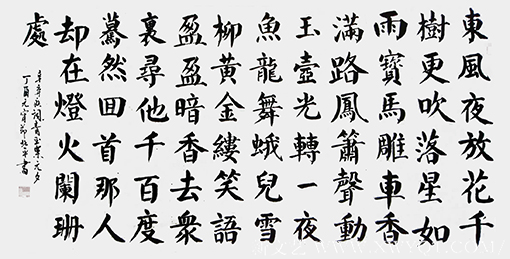 東風夜放花千
樹更吹落星如
雨寶馬雕車香
滿路鳳簫聲動
玉壺光轉一夜
魚龍舞蛾兒雪
柳黃金縷笑語
盈盈暗香去衆
裏尋他千百度
驀然囬首那人
却在燈火闌珊
處
辛棄疾詞青玉案元夕
丁酉元宵節 書